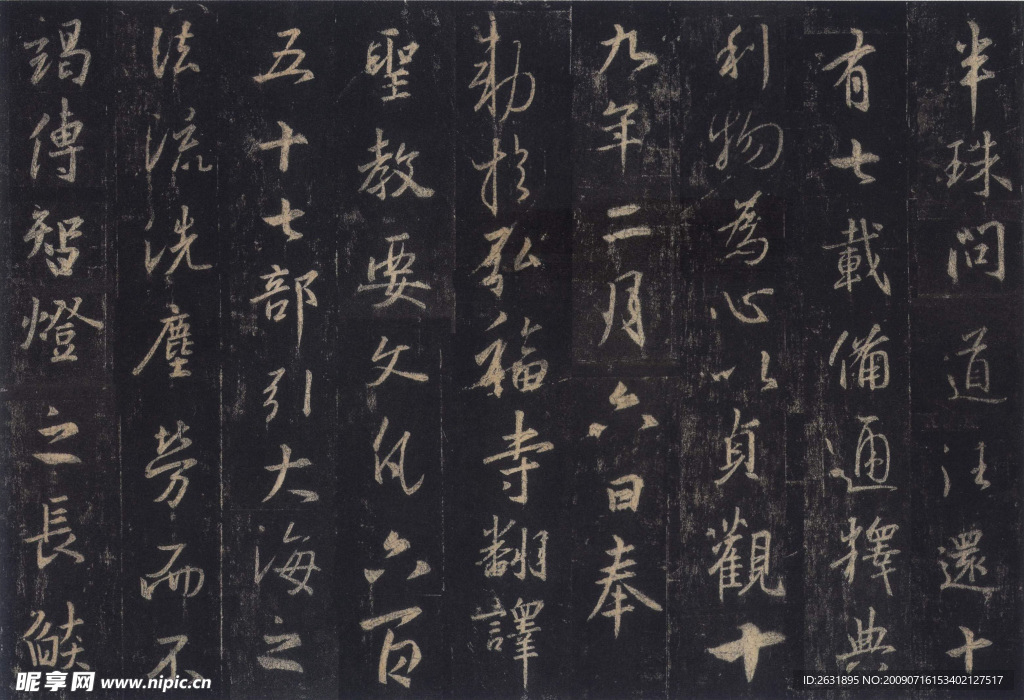 半珠問道往還十
有七載備通釋典
利物為心以貞觀十
九年二月六日奉
勅於弘福寺翻譯
聖教要文凡六百
五十七部引大海之
法流洗塵勞而不
竭傳智燈之長燄
昵享网 www.nipic.cn
ID:2631895 NO:20090716153402127517